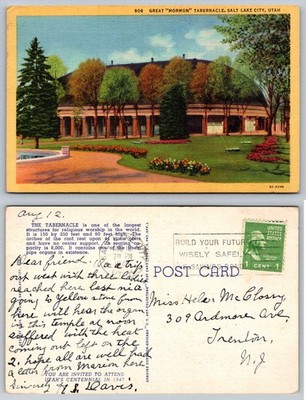 909 GREAT "MORMON" TABERNACLE, SALT LAKE CITY, UTAH
THE TABERNACLE is one of the largest
structures for religious worship in the world.
It is 150 by 250 feet and 80 feet high. The
arches of the roof rest upon
and have no center support. Its seating ca-
pacity is 8,000. It contains one of the finest
pipe organs in existence.
Aug 12.
Dear friend.
on a trip
out west with three ladies
reached here last nite
going to Yellowstone from
here will hear the organ
in this temple at noon
suffered with the heat
coming out left on the
2. hope all are well had
a letter from Marion here
Sincerely
Davis.
YOU ARE INVITED TO ATTEND
UTAH'S CENTENNIAL IN 1947
BUILD YOUR FUTURE
WISELY SAFELY
1 CENT 1
POST CARD
Miss Helen McClossy,
309 Ardmore Ave
Trenton,
N.J